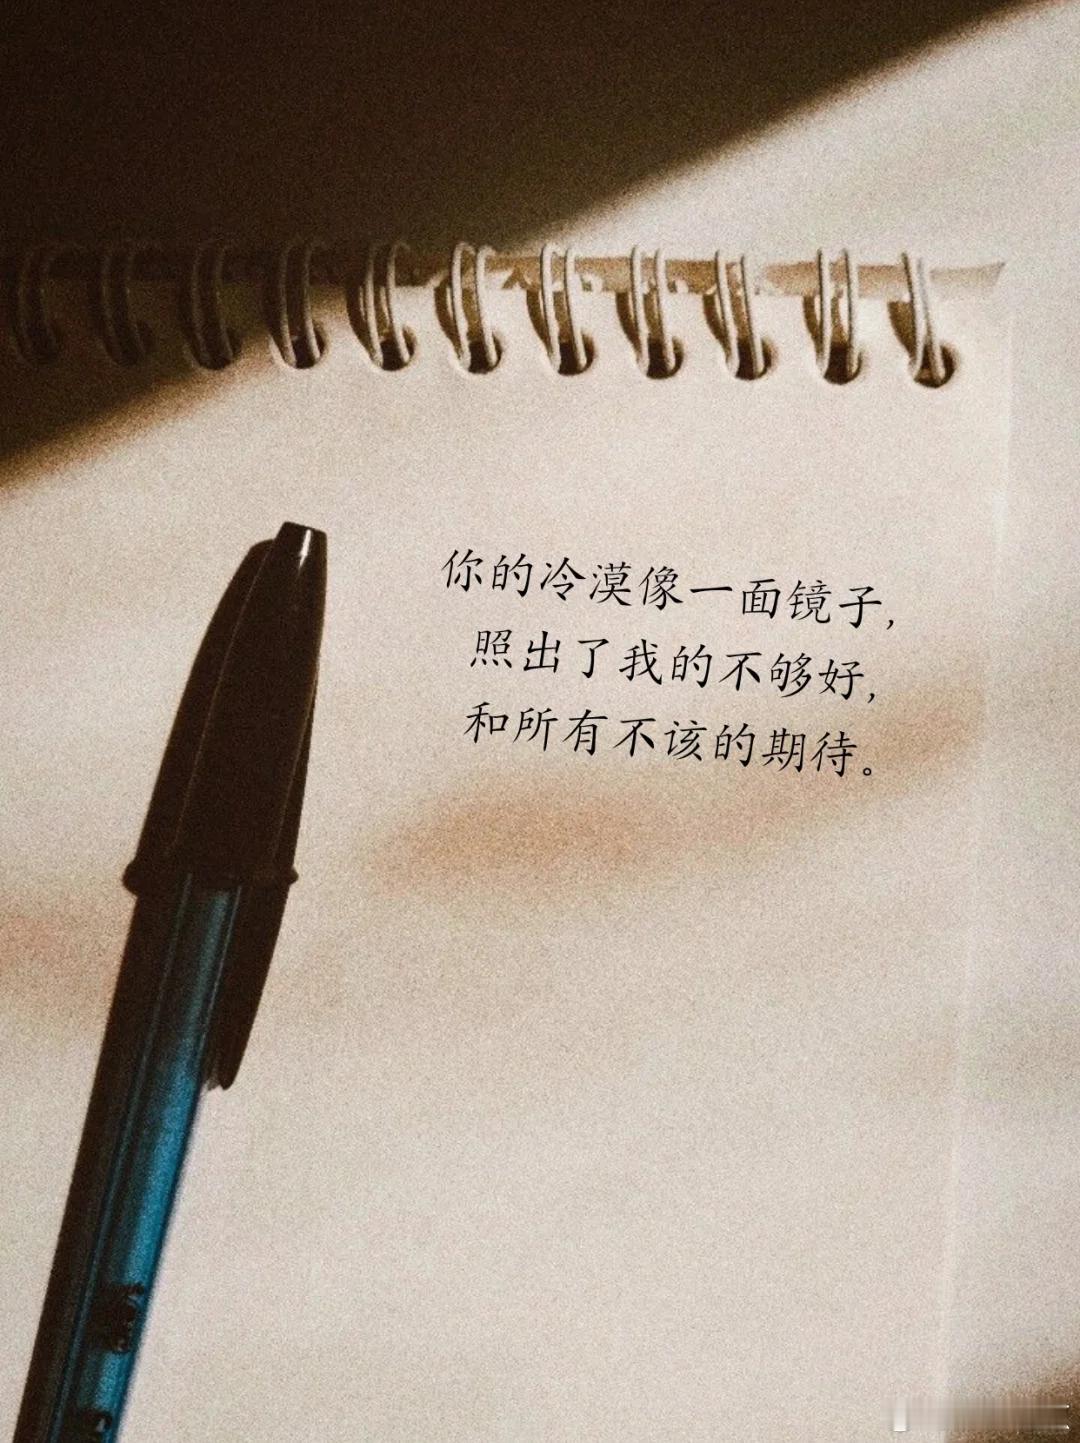 你的冷漠像一面镜子,
照出了我的不够好,
和所有不该的期待。